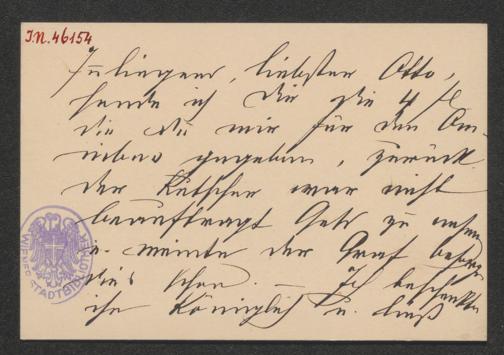 I.N. 46154
Inliegend, liebster Otto,
sende ich Dir die 4 fl
die Du mir für den Om-
nibus gegeben, zurück.
Der Kutscher war nicht
beauftragt Geld zu nehmen
u. meinte der Graf
dies schon. — Ich beschenkte
ihn königlich u. ließ
WIENER STADTBIBLIOTHEK